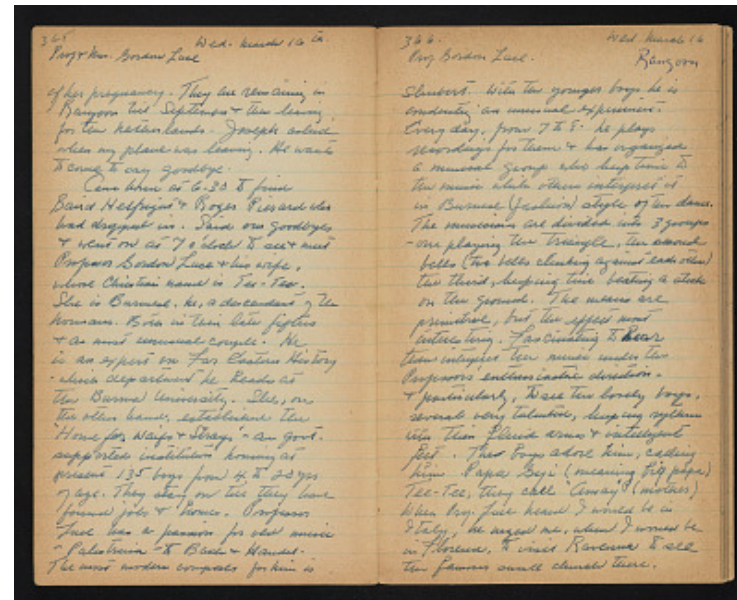 365 Wed. March 16 th.
Prof & Mrs. Gordon Luce
of her pregnancy. They are remaining in
Rangoon till September & then leaving
for the Netherlands. Joseph
when my plane was leaving. He wants
to come to say goodbye.
Came home at 6.30 to find
Baird Helfrich & Roger Pissard who
had dropped in. Said our goodbyes
& went on at 7 o'clock to see & meet
Professor Gordon Luce & his wife,
whose Christian name is Tee-Tee.
She is Burmese, he, a descendent of the
Normans. Both in their late fifties
& a most unusual couple. He
is an expert on Far Eastern History
- which department he heads at
the Burma University. She, on
the other hand, established the
"Home for Waifs & Strays" - an govt.
supported institution housing at
present 135 boys from 4 to 20 yrs
of age. They stay on till they have
found jobs & homes. Professor
Luce has a passion for old music
- Palestrina - to Bach & Handel.
The most modern composer for him is
366 Wed. March 16
Prof Gordon Luce. Rangoon
Schubert. With the younger boys he is
conducting an unusual experiment.
Every day, from 7 to 8. he plays
recordings for them & has organized
a musical group who keep time to
the music while others interpret it
in Burmese (fashion) style of the dance.
The musicians are divided into 3 groups
- one playing the triangle, the second
bells (two bells clinking against each other)
the third, keeping time beating a stick
on the ground. The means are
primitive, but the effect most
interesting. Fascinating to hear
the music under the
Professor's enthusiastic direction -
& particularly, to see the lovely boys,
several very talented, keeping rhythm
with their fluid arms & intelligent
feet. These boys adore him, calling
him Papa Gyi (meaning big papa)
Tee-Tee, they call "Amay" (mother)
When Prof. Luce heard I would be in
Italy, he urged me, when I would be
in Florence, to visit Ravenna to see
the famous small church there.